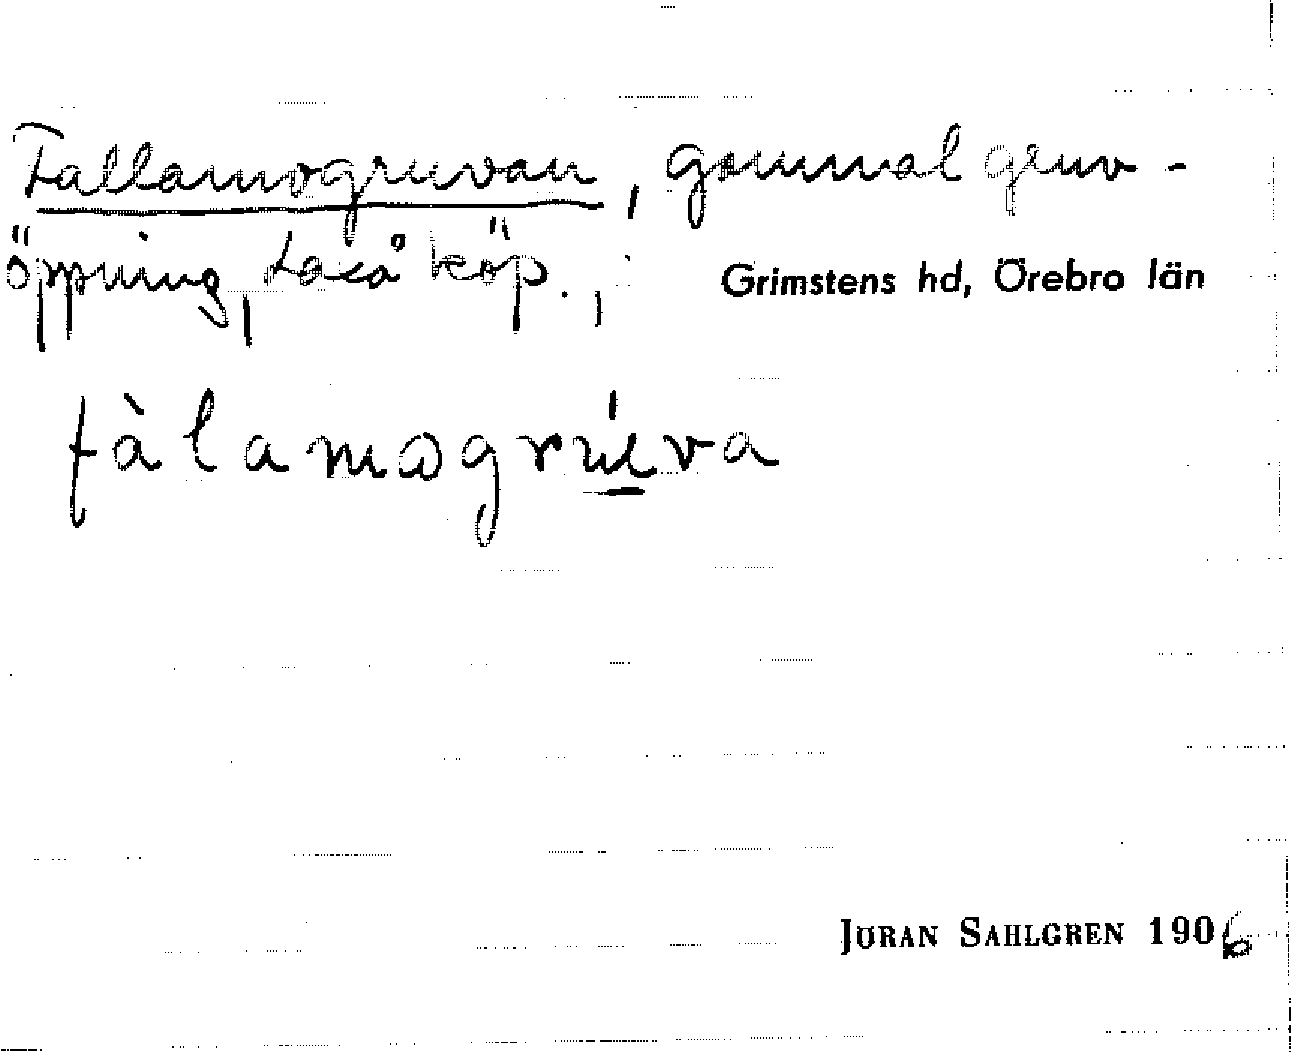 Fallamogruvan, gammal gruv-
öppning, Laxå köp.,
Grimstens hd, Örebro län
fàlamogru̱va
JÖRAN SAHLGREN 1906